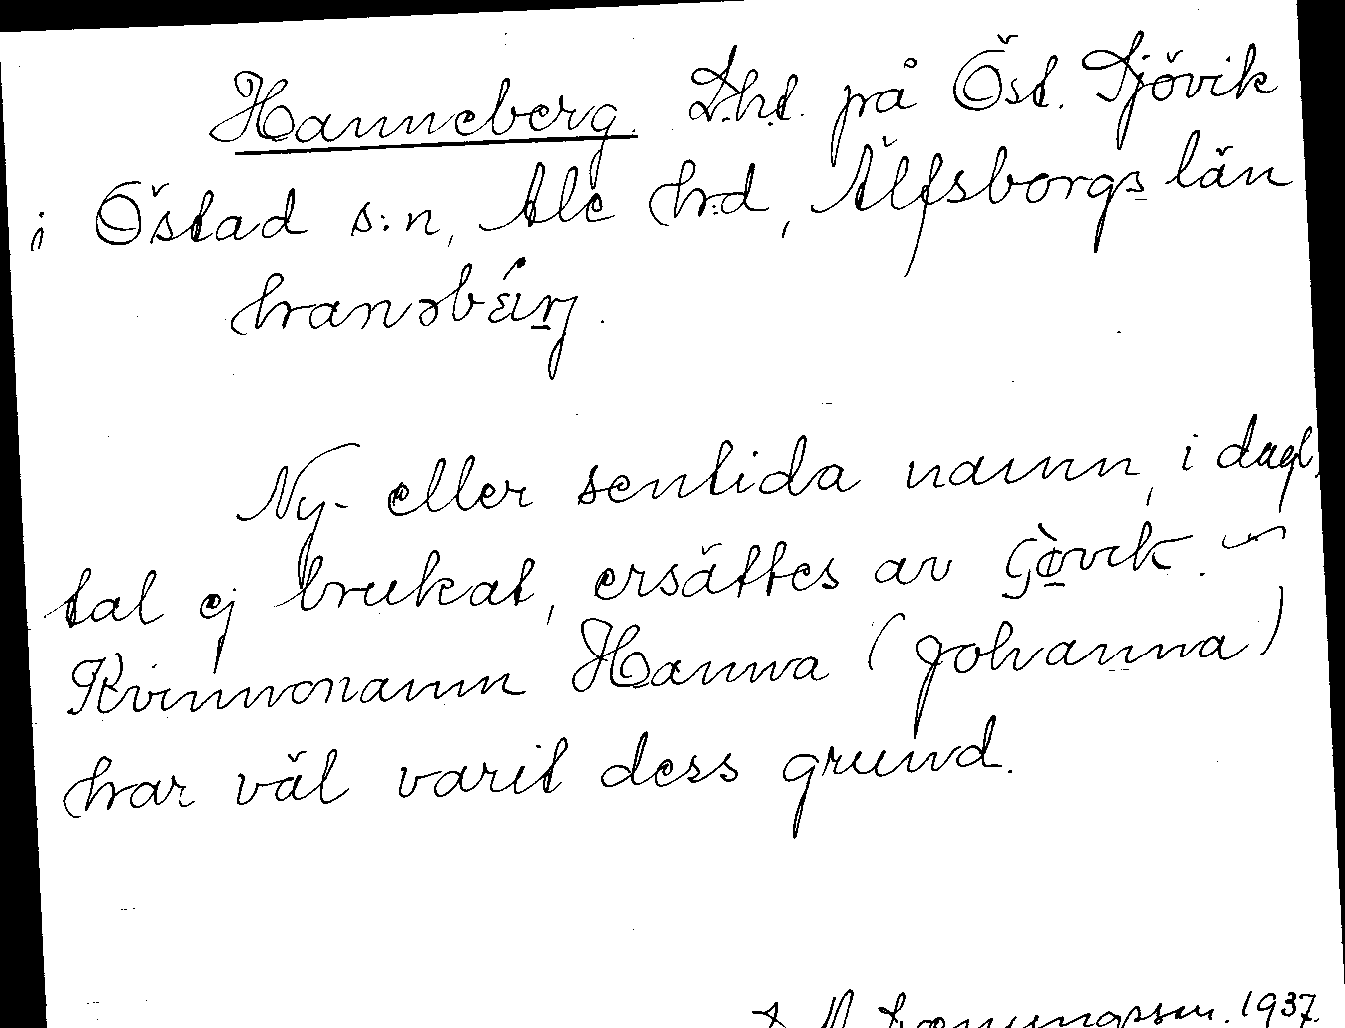 Hanneberg. Lht. på Öst. Sjövik
i Östad s:n, Ale h:d, Älfsborgs län
hanəbærj.
Ny- eller sentida namn, i dagl.
tal ej brukat, ersättes av
Kvinnonamn Hanna (Johanna)
har väl varit dess grund.
1937.